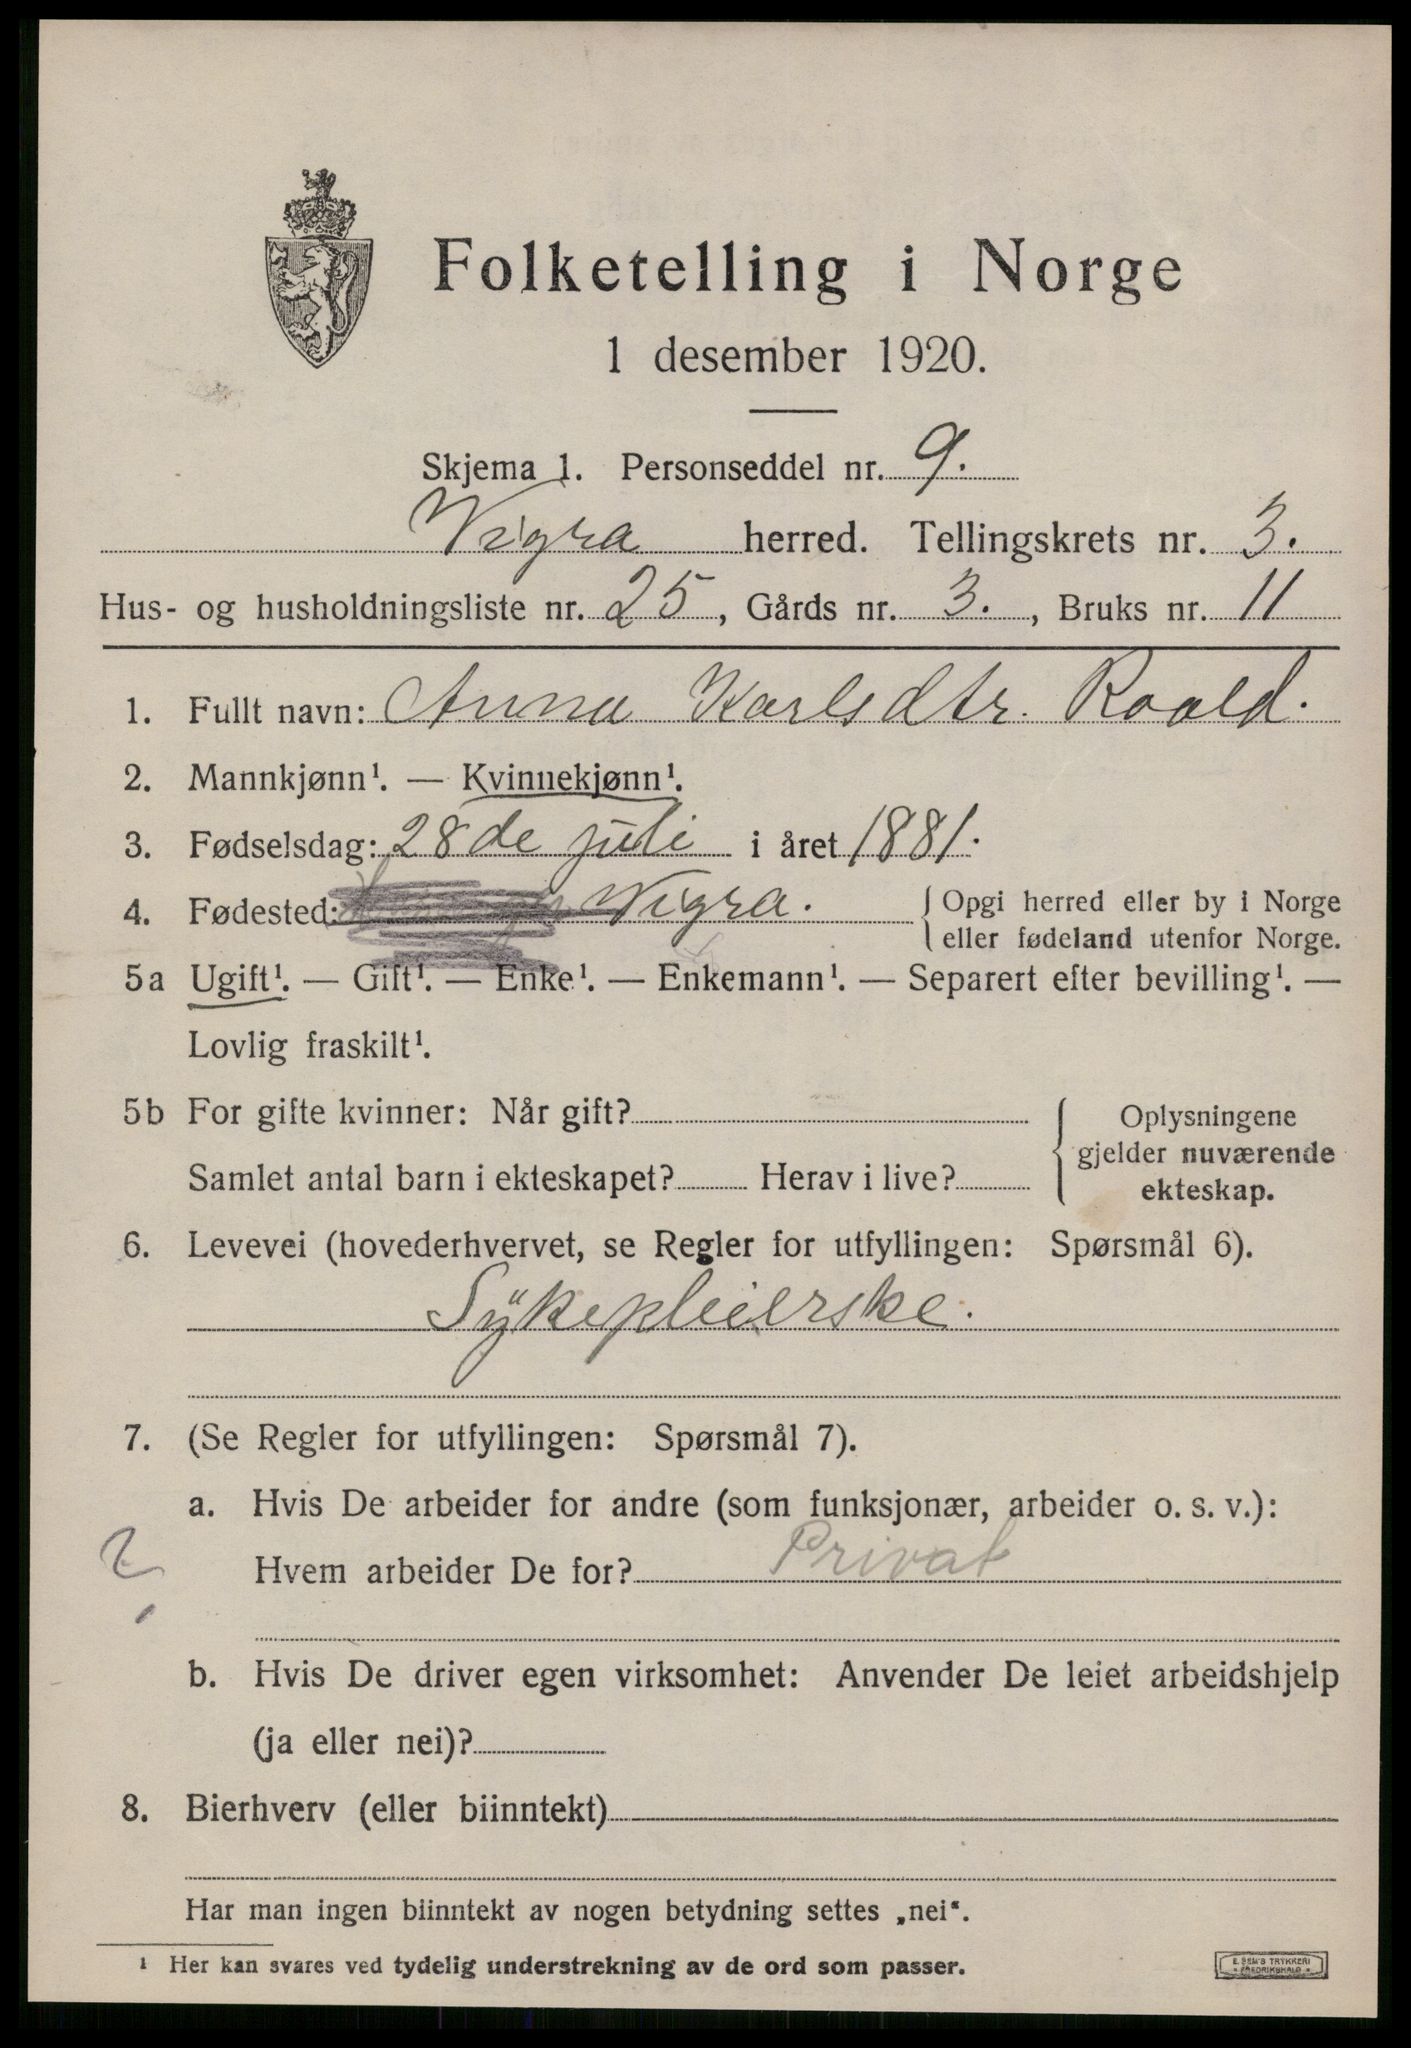 Folketelling i Norge
1 desember 1920.
Skjema 1. Personseddel nr. 9.
Vigra herred. Tellingskrets nr. 3.
Hus- og husholdningsliste nr. 25, Gårds nr. 3., Bruks nr. 11
1. Fullt navn: Anna Karlsdtr. Roald.
2. Mannkjønn¹. — Kvinnekjønn¹.
3. Fødselsdag: 28de juli i året 1881.
4. Fødested: Vigra. { Opgi herred eller by i Norge
eller fødeland utenfor Norge.
5a Ugift¹. — Gift¹. — Enke¹. — Enkemann¹. — Separert efter bevilling¹. —
Lovlig fraskilt¹.
5b For gifte kvinner: Når gift?
Samlet antal barn i ekteskapet? Herav i live?
{ Oplysningene
gjelder nuværende
ekteskap.
6. Levevei (hovederhvervet, se Regler for utfyllingen: Spørsmål 6).
Sykepleierske.
7. (Se Regler for utfyllingen: Spørsmål 7).
a. Hvis De arbeider for andre (som funksjonær, arbeider o. s. v.):
? Hvem arbeider De for? Privat
b. Hvis De driver egen virksomhet: Anvender De leiet arbeidshjelp
(ja eller nei)?
8. Bierhverv (eller biinntekt)
Har man ingen biinntekt av nogen betydning settes „nei“.
¹ Her kan svares ved tydelig understrekning av de ord som passer.
E. SEM'S TRYKKERI
FREDRIKSHALD